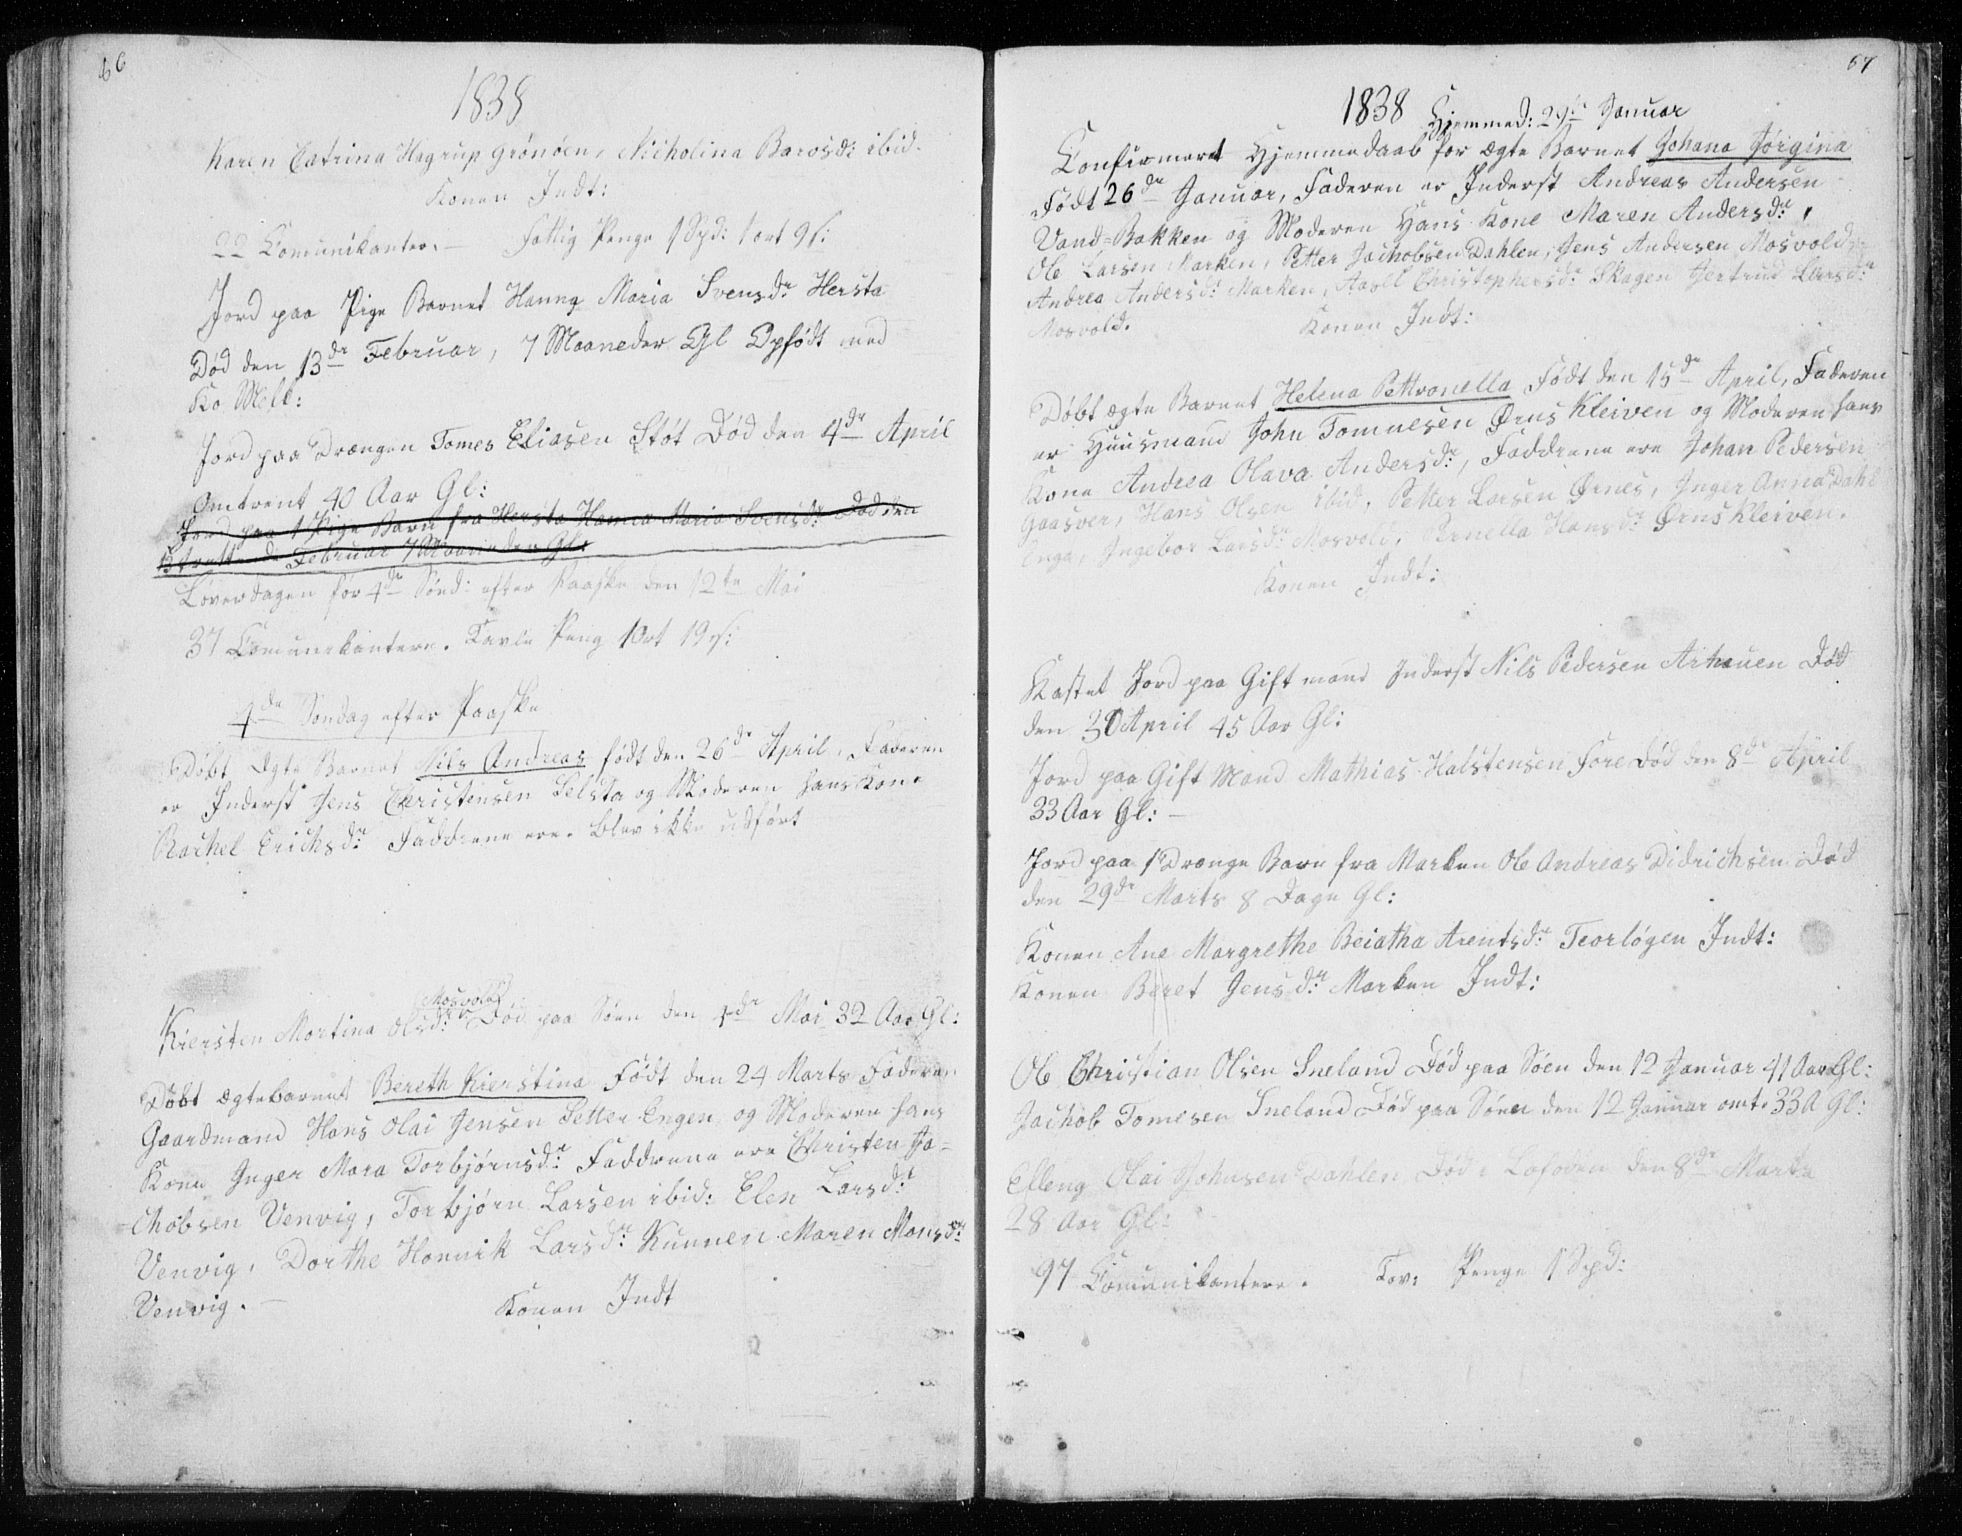 66
1838
Karen Catrina Hagrup Grönöen, Nicholina Barosd: ibid.
Konen Indt:
22 Comunikanter. — Fattig Penge 1 Spd: 1 ort 9 s:
Jord paa Pige Barnet Hanna Maria Svensdr Hersta
Död den 13de Februar, 7 Maaneder Gl Opfødt med
Ko Melk:
Jord paa Drængen Tomes Eliasen Støt Död den 4de April
Omtrent 40 Aar Gl:
Jord paa 1 Pige Barn fra Hersta Hanna Maria Svensdr: Död den
Februar 7 Maaneder Gl:
Løverdagen før 4de Sönd: efter Paaske den 12te Mai
37 Comunikantere. Tavle Peng 1 Ort 19 s:
4de Søndag efter Paaske
Døbt Ægte Barnet Nils Andreas født den 26de April, Faderen
er Inderst Jens Christensen Selsta og Moderen hans Kone
Rachel Erichsdr: Faddrene ere. blev ikke udført
Mosvold
Kiersten Martina Olsdr: Död paa Søen den 4de Mai 32 Aar Gl:
Døbt ægtebarnet Bereth Kierstina Født den 24 Marts Faderen
Gaardmand Hans Olai Jensen Setter Engen og Moderen hans
Kone Inger Mara Torbjørnsdr: Faddrene ere Christen Ja-
chobsen Venvig, Torbjørn Larsen ibid: Elen Larsdr:
Venvig, Dorthe Hannik Larsdr: Kunnen Maren Monsdr:
Venvig. —
Konen Indt
67
1838 Hjemmed: 29de Januar
Confirmeret Hjemmedaab for ægte Barnet Johana Jörgina
Født 26de Januar, Faderen er Inderst Andreas Andersen
Vand=Bakken og Moderen Hans Kone Maren Andersdr,
Ole Larsen Marken, Petter Jachobsen Dahlen, Jens Andersen Mosvold,
Andrea Andersdr: Marken, Christophersdr: Skagen Jertrud Larsdr:
Mosvold.
Konen Indt:
Døbt ægte Barnet Helena Pettronella Født den 15de April, Faderen
er Huusmand John Tomnesen Ørnes Kleiven og Moderen hans
Kone Andrea Olava Andersdr:, Faddrene ere Johan Pedersen
Gaasver, Hans Olsen ibid, Petter Larsen Ørnes, Inger Anna Dahl
Enga, Ingebor Larsdr: Mosvold, Pernella Hansdr: Ørnes Kleiven.
Konen Indt:
Kastet Jord paa Gift mand Inderst Nils Pedersen Arhauen Död
den 30 April 45 Aar Gl:
Jord paa Gift Mand Mathias Halstensen Fore Död den 8de April
33 Aar Gl: —
Jord paa 1 Drænge Barn fra Marken Ole Andreas Didrichsen Död
den 29de Marts 8 Dage Gl:
Konen Ane Margrethe Beiatha Arentsdr: Teorløgen Indt:
Konen Beret Jensdr: Marken Indt:
Ole Christian Olsen Sneland Död paa Søen den 12 Januar 41 Aar Gl:
Jachob Tomesen Sneland Död paa Søen den 12 Januar omt: 33 A Gl:
Elleng Olai Johnsen Dahlen Död i Lofoden den 8de Marts
28 Aar Gl:
97 Comunikantere. Tav: Penge 1 Spd: